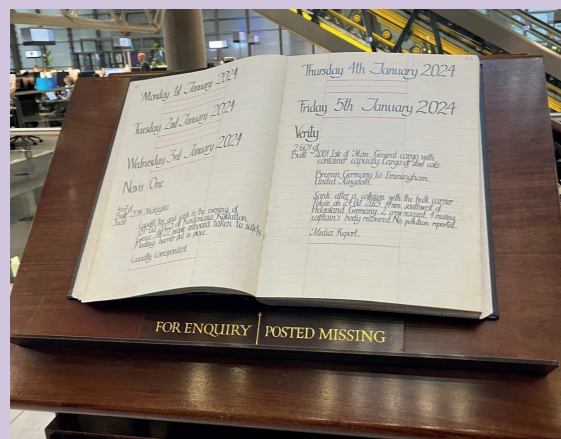 Monday 1st January 2024
Tuesday 2nd January 2024
Wednesday 3rd January 2024
Navis One
Built 2014 Malaysia
sank in the evening of
people onboard taken to safety
barrier put in place.
Casualty Correspondent
Thursday 4th January 2024
Friday 5th January 2024
Verity
2,601 gt
Built 2001 Isle of Man. General cargo with
container capacity. Cargo of steel coils.
Bremen, Germany to Immingham,
United Kingdom.
Sank after a collision with the bulk carrier
Polesie on 24 Oct 2023, southwest of
Helgoland, Germany. 2 crew rescued, 4 missing,
captain's body recovered. No pollution reported.
Media Report.
FOR ENQUIRY POSTED MISSING